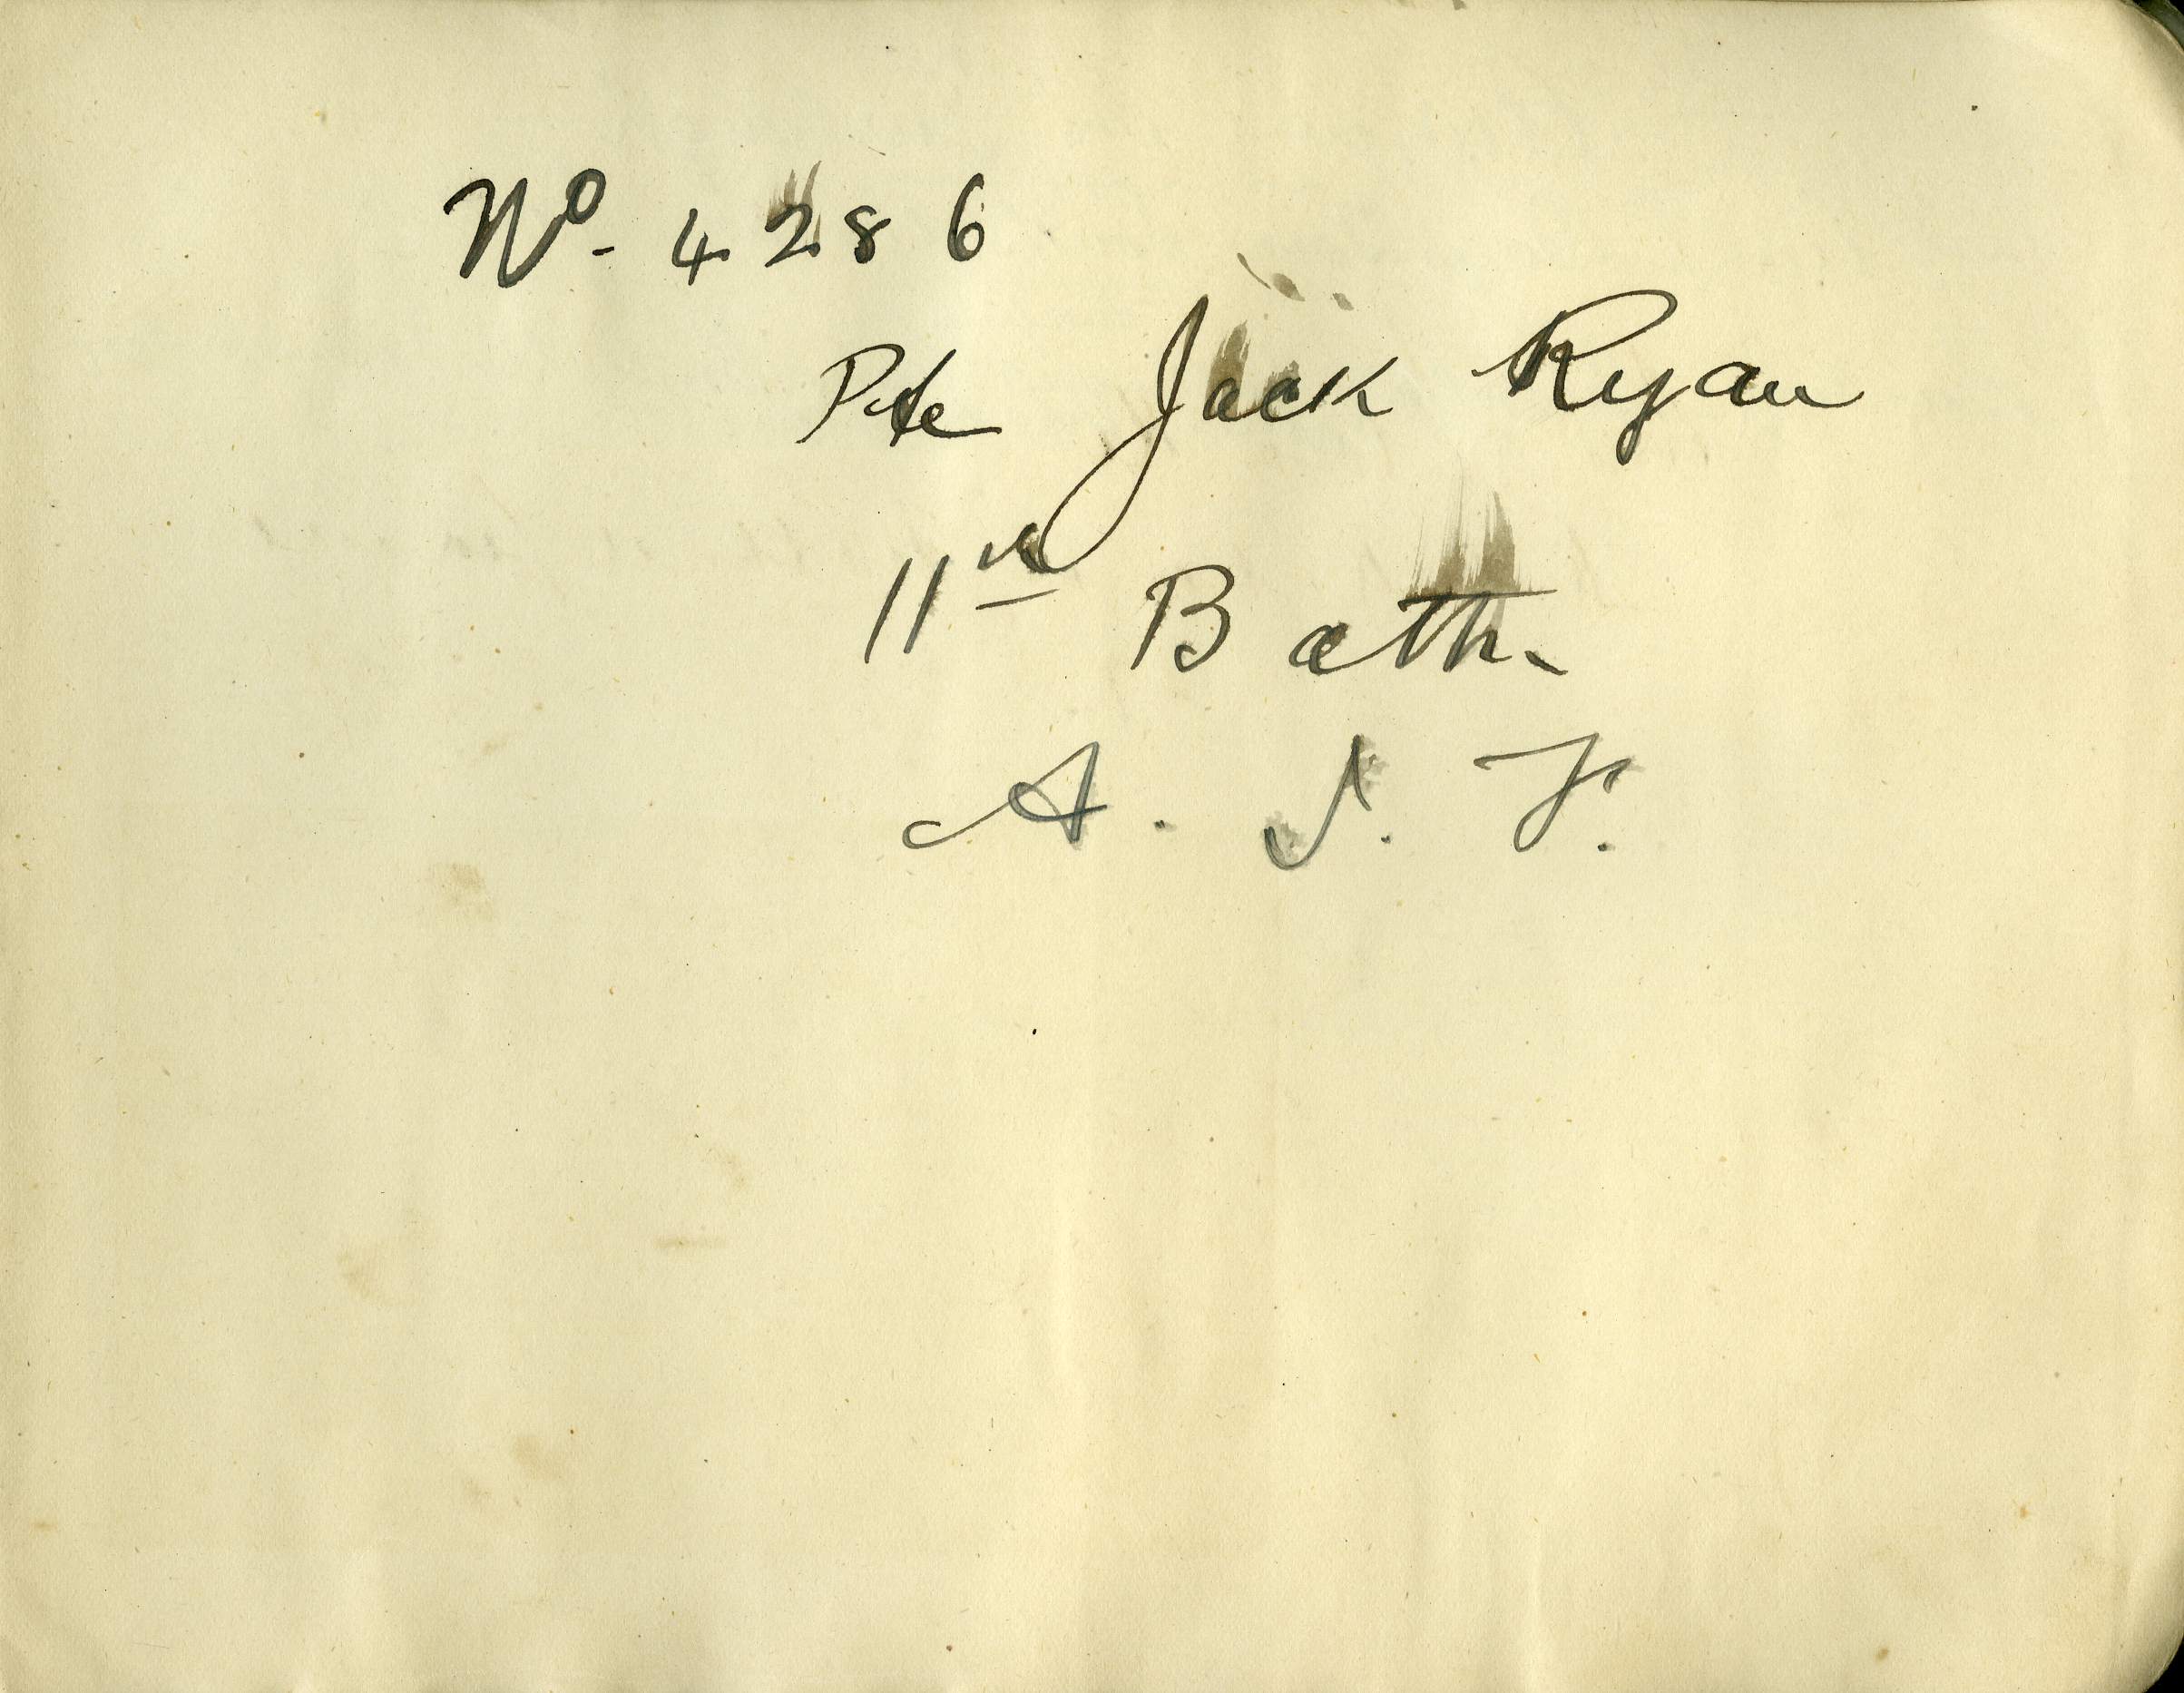 No. 4286
Pte Jack Ryan
11th Batt.
A. I. F.